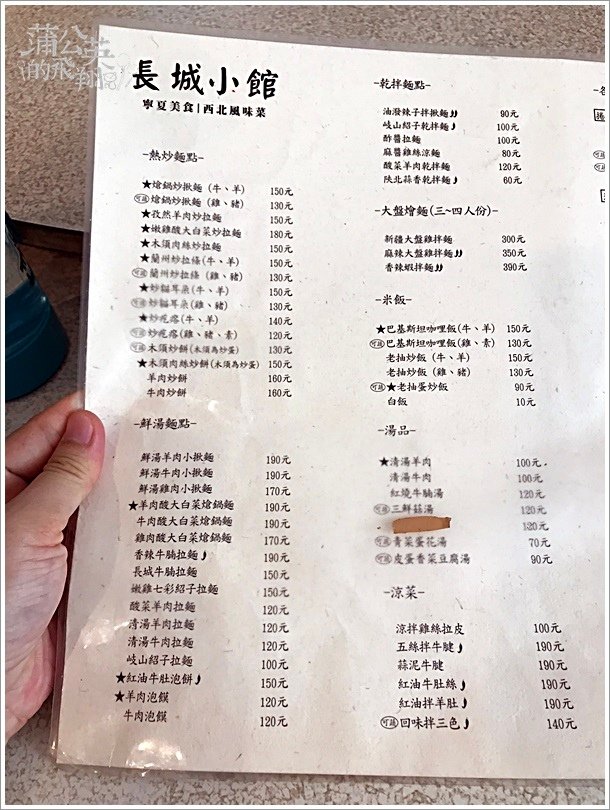 蒲公英
的飛翔
長城小館
寧夏美食|西北風味菜
-熱炒麵點-
★熗鍋炒揪麵(牛、羊) 150元
可素 熗鍋炒揪麵(雞、豬) 130元
★孜然羊肉炒拉麵 150元
★嫩雞酸大白菜炒拉麵 180元
★木須肉絲炒拉麵 150元
★蘭州炒拉條(牛、羊) 150元
可素 蘭州炒拉條(雞、豬) 130元
★炒貓耳朵(牛、羊) 150元
可素 炒貓耳朵(雞、豬) 130元
★炒疙瘩(牛、羊) 140元
可素 炒疙瘩(雞、豬、素) 120元
可素 木須炒餅(木須為炒蛋) 130元
★木須肉絲炒餅(木須為炒蛋) 150元
羊肉炒餅 160元
牛肉炒餅 160元
-鮮湯麵點-
鮮湯羊肉小揪麵 190元
鮮湯牛肉小揪麵 190元
鮮湯雞肉小揪麵 170元
★羊肉酸大白菜熗鍋麵 190元
牛肉酸大白菜熗鍋麵 190元
雞肉酸大白菜熗鍋麵 170元
香辣牛腩拉麵 190元
長城牛腩拉麵 150元
嫩雞七彩紹子拉麵 150元
酸菜羊肉拉麵 120元
清湯羊肉拉麵 120元
清湯牛肉拉麵 120元
岐山紹子拉麵 100元
★紅油牛肚泡餅 150元
★羊肉泡饃 120元
牛肉泡饃 120元
-乾拌麵點-
油潑辣子拌揪麵 90元
岐山紹子乾拌麵 100元
酢醬拉麵 100元
麻醬雞絲涼麵 80元
酸菜羊肉乾拌麵 120元
陝北蒜香乾拌麵 60元
-大盤燴麵(三~四人份)-
新疆大盤雞拌麵 300元
麻辣大盤雞拌麵 350元
香辣蝦拌麵 390元
-米飯-
★巴基斯坦咖哩飯(牛、羊) 150元
可素 巴基斯坦咖哩飯(雞、素) 130元
老抽炒飯(牛、羊) 150元
老抽炒飯(雞、豬) 130元
可素 ★老抽蛋炒飯 90元
白飯 10元
-湯品-
★清湯羊肉 100元
清湯牛肉 100元
紅燒牛腩湯 120元
可素 三鮮菇湯 120元
120元
可素 青菜蛋花湯 70元
可素 皮蛋香菜豆腐湯 90元
-涼菜-
涼拌雞絲拉皮 100元
五絲拌牛腱 190元
蒜泥牛腱 190元
紅油牛肚絲 190元
紅油拌羊肚 190元
可素 回味拌三色 140元